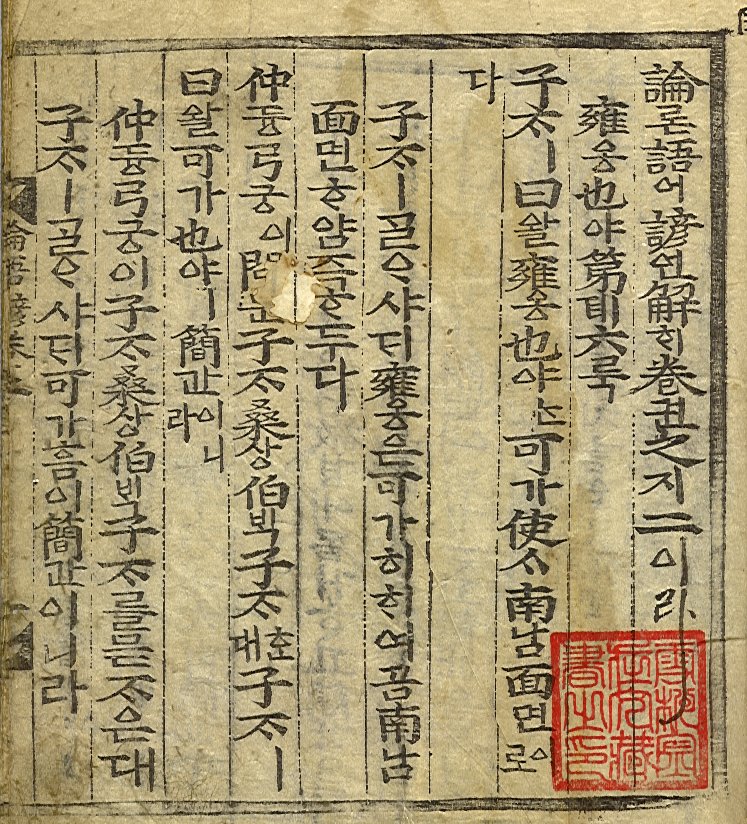 論론語어諺언解ᄒᆡ卷권之지二이라
雍옹也야第뎨六륙
子ᄌᆞㅣ曰왈雍옹也야ᄂᆞᆫ可가使ᄉᆞ南남面면이로
다
子ᄌᆞㅣᄀᆞᆯᄋᆞ샤ᄃᆡ雍옹은可가히ᄒᆡ여곰南남
面면ᄒᆞ얌즉ᄒᆞ두다
仲듕弓궁이問문子ᄌᆞ桑상伯ᄇᆡᆨ子ᄌᆞᄒᆞᆫ대子ᄌᆞㅣ
曰왈可가也야ㅣ簡간이니라
仲듕弓궁이子ᄌᆞ桑상伯ᄇᆡᆨ子ᄌᆞ를묻ᄌᆞ온대
子ᄌᆞㅣᄀᆞᆯᄋᆞ샤ᄃᆡ可가흠이簡간이니라